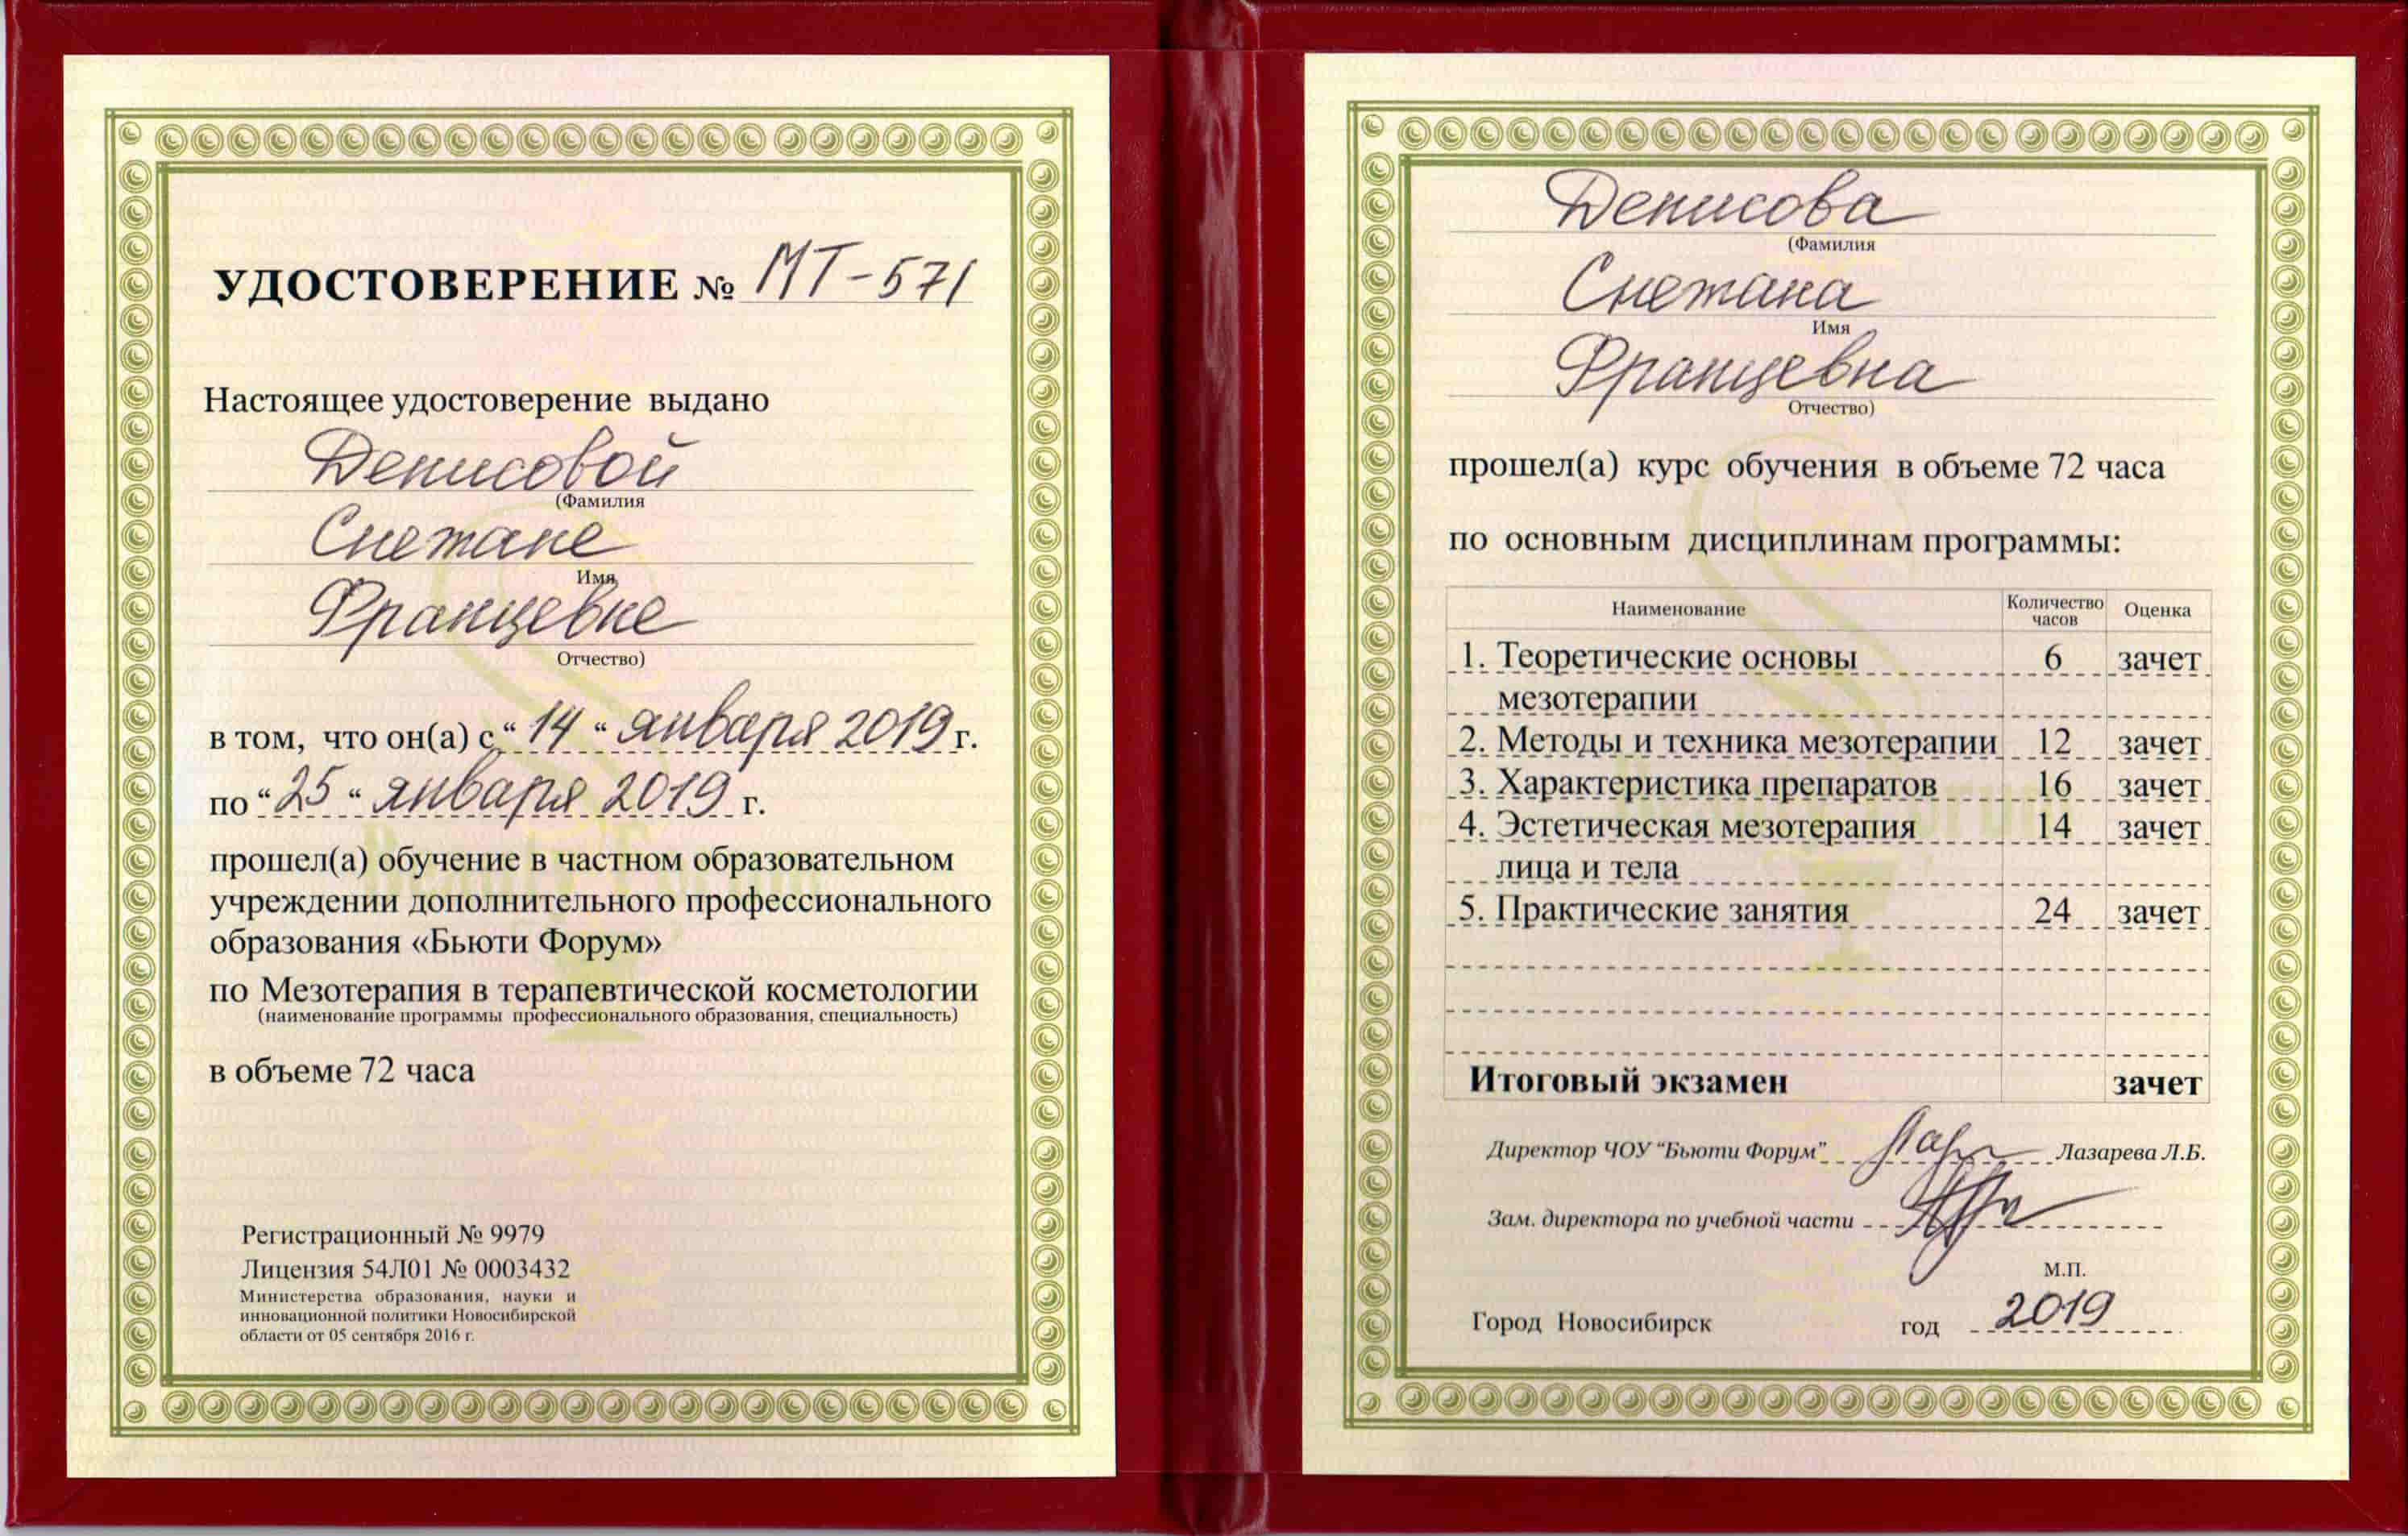 УДОСТОВЕРЕНИЕ № МТ-571
Настоящее удостоверение выдано
Денисовой
(Фамилия
Снежане
Имя
Францевне
Отчество)
в том, что он(а) с “ 14 “ января 2019 г.
по “ 25 “ января 2019 г.
прошел(а) обучение в частном образовательном
учреждении дополнительного профессионального
образования «Бьюти Форум»
по Мезотерапия в терапевтической косметологии
(наименование программы профессионального образования, специальность)
в объеме 72 часа
Регистрационный № 9979
Лицензия 54Л01 № 0003432
Министерства образования, науки и
инновационной политики Новосибирской
области от 05 сентября 2016 г.
Денисова
(Фамилия
Снежана
Имя
Францевна
Отчество)
прошел(а) курс обучения в объеме 72 часа
по основным дисциплинам программы:
Наименование Количество часов Оценка
1. Теоретические основы 6 зачет
мезотерапии
2. Методы и техника мезотерапии 12 зачет
3. Характеристика препаратов 16 зачет
4. Эстетическая мезотерапия 14 зачет
лица и тела
5. Практические занятия 24 зачет
Итоговый экзамен зачет
Директор ЧОУ “Бьюти Форум” Лазарева Л.Б.
Зам. директора по учебной части
М.П.
Город Новосибирск год 2019